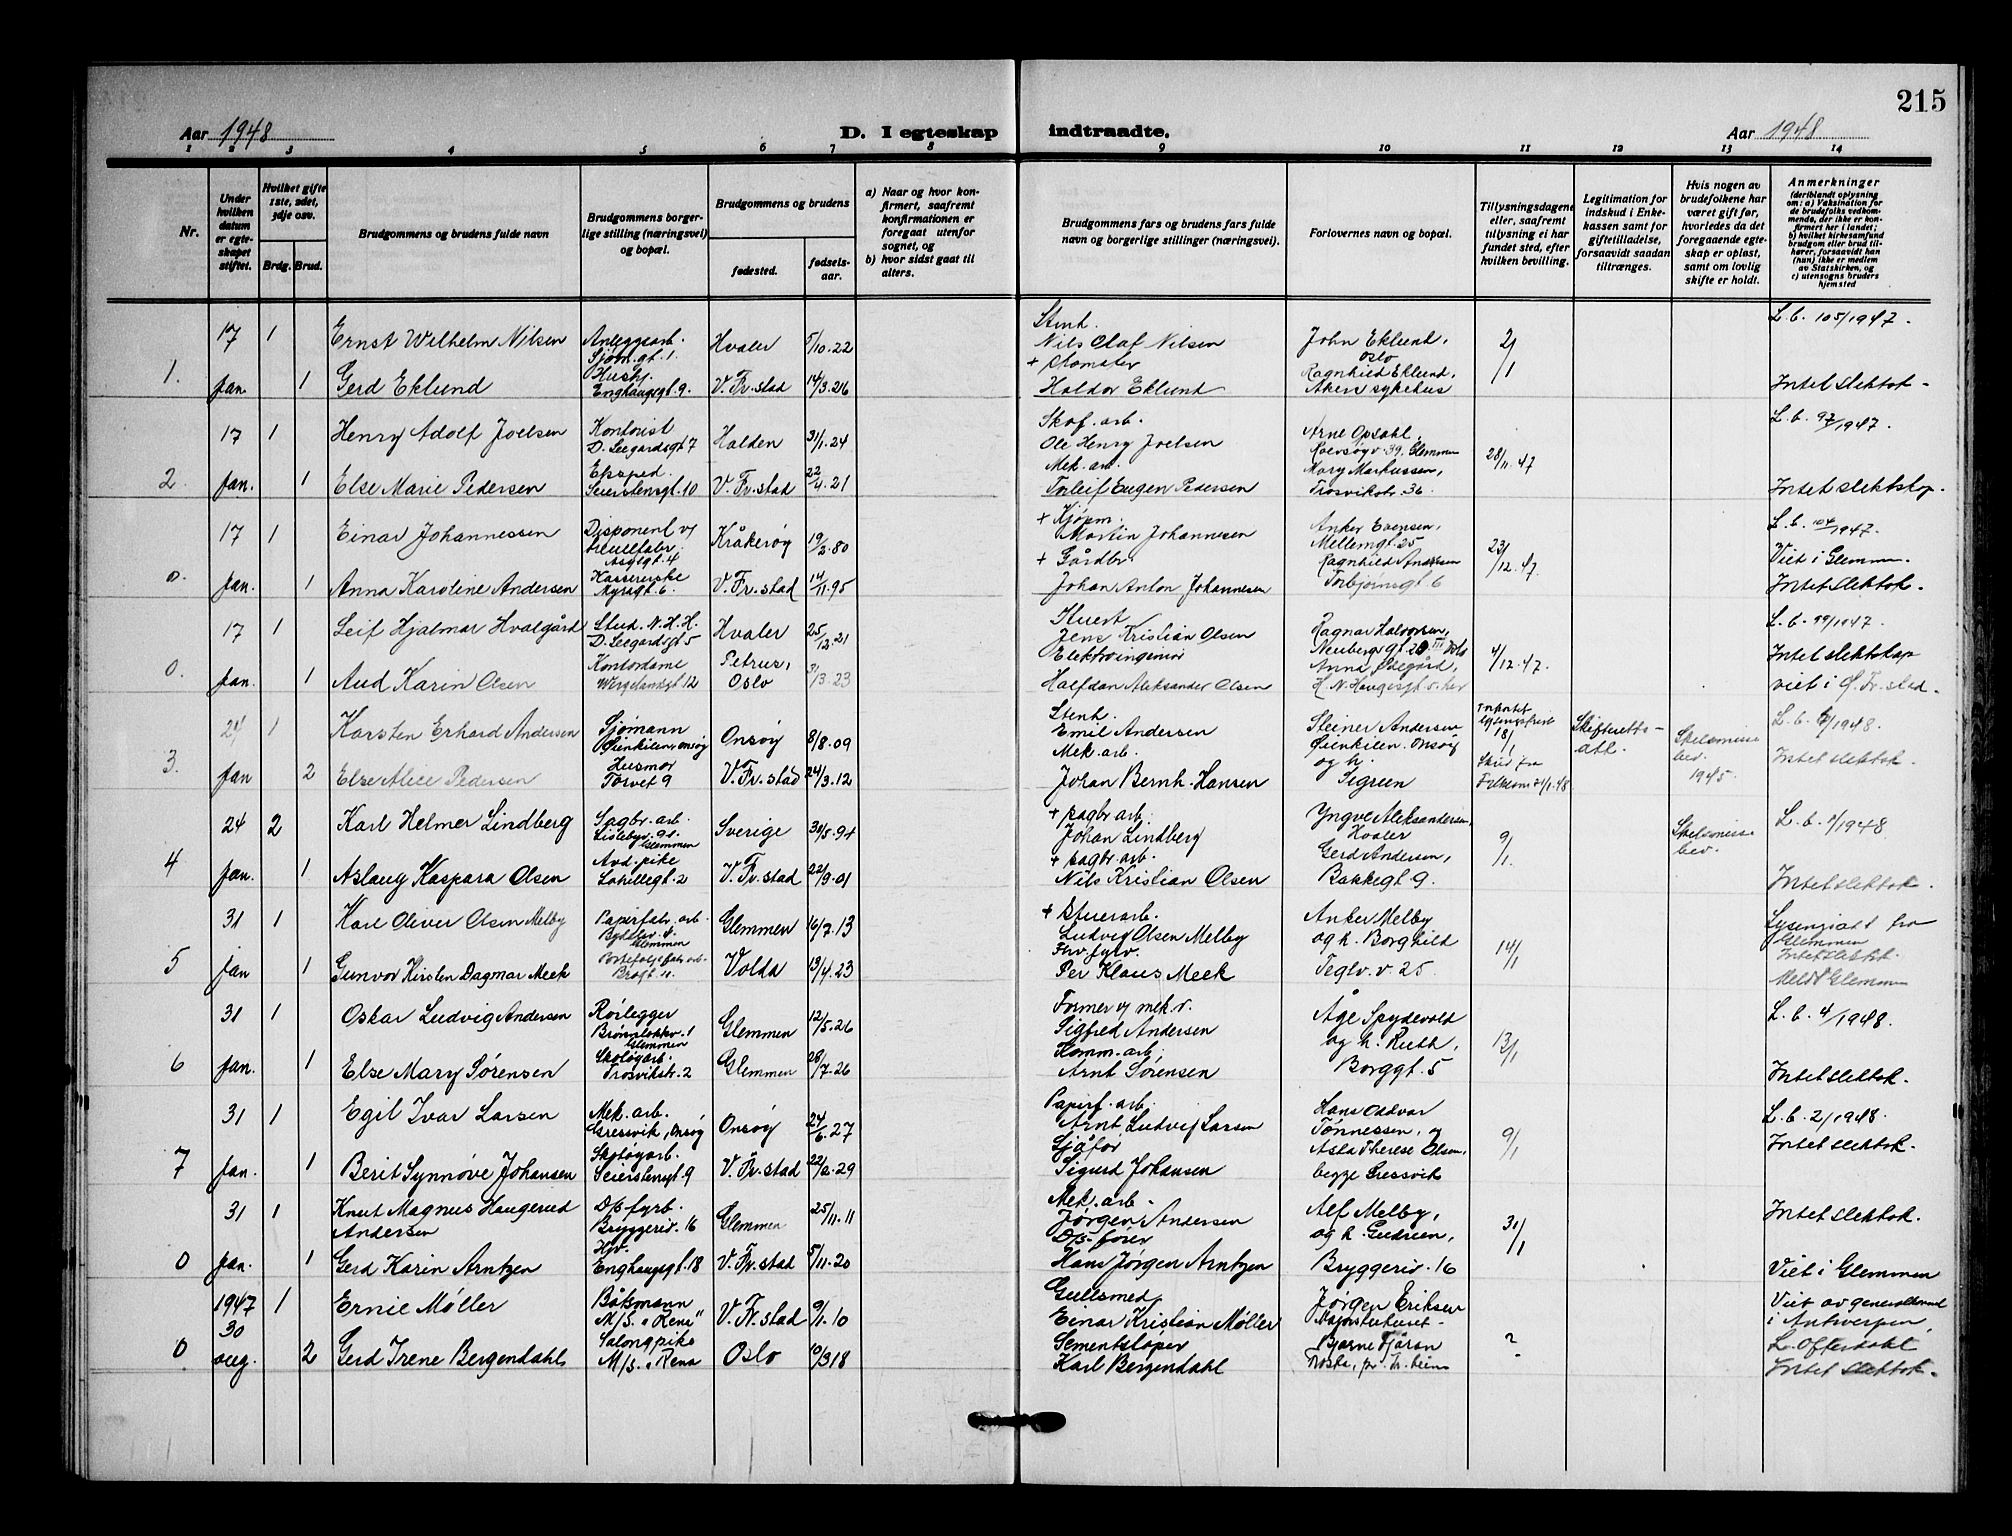 215
Aar 1948
D. I egteskap indtraadte.
Aar 1948
1 2 3 4 5 6 7 8 9 10 11 12 13 14
Nr.
Under hvilken datum er egteskapet stiftet.
Hvilket gifte 1ste, 2det, 3dje osv.
Brdg.
Brud.
Brudgommens og brudens fulde navn
Brudgommens borgerlige stilling (næringsvei) og bopæl.
Brudgommens og brudens
fødested.
fødselsaar.
a) Naar og hvor konfirmert, saafremt konfirmationen er foregaat utenfor sognet, og
b) hvor sidst gaat til alters.
Brudgommens fars og brudens fars fulde navn og borgerlige stillinger (næringsvei).
Forlovernes navn og bopæl.
Tillysningsdagene eller, saafremt tillysning ei har fundet sted, efter hvilken bevilling.
Legitimation for indskud i Enkekassen samt for giftetilladelse, forsaavidt saadan tiltrænges.
Hvis nogen av brudefolkene har været gift før, hvorledes da det foregaaende egteskap er opløst, samt om lovlig skifte er holdt.
Anmerkninger
(deriblandt oplysning om: a) Vaksination for de brudefolks vedkommende, der ikke er konfirmert her i landet; b) hvilket kirkesamfund brudgom eller brud tilhører, forsaavidt han (hun) ikke er medlem av Statskirken, og c) utensogns bruders hjemsted
1.
17 Jan.
1 Ernst Wilhelm Nilsen Anleggsarb. Sjøm.gt. 1. Hvaler 5/10.22
Stenh. Nils Olaf Nilsen John Eklund, Oslo 2/1 L.b. 105/1947.
1 Gerd Eklund Hushj. Enghaugsgt. 9. V. Fr.stad 14/3.26
Haldor Eklund Ragnhild Eklund, Aker sykehus Intet slektsk.
2.
17 Jan.
1 Henry Adolf Joelsen Kontorist D. Seegardsgt 7 Halden 31/1.24
Skof. arb. Ole Henry Joelsen Arne Opsahl, Rolvsøyv. 39, Glemmen 28/11.47 L.b. 97/1947.
1 Else Marie Pedersen Eksped. Seierstensgt. 10 V. Fr.stad 22/4.21
Mek. arb. Torleif Eugen Pedersen Mary Markussen, Trosvikstr. 36. Intet slektskap.
0.
17 Jan.
1 Einar Johannessen Disponent Kråkerøy 19/2.80
+ Kjøpm. Martin Johannesen Anker Evensen, Mellemgt. 25 23/12.47. L.b. 104/1947. Viet i Glemmen
1 Anna Karoline Andersen Kassererske Myragt. 6. V. Fr.stad 14/11.95
+ Gårdbr. Johan Anton Johannesen Ragnhild Andersen Torbjørnsgt. 6 Intet slektsk.
0.
17 Jan.
1 Leif Hjalmar Hvalgård Stud. N.H.H. D. Seegardsgt 5 Hvaler 25/12.21
Jens Kristian Olsen Ragnar Halvorsen, 4/12.47. L.b. 99/1947 Intet slektskap
1 Aud Karin Olsen Kontordame Wergelandsgt 12 Oslo 3/13.23
Elektroingeniør Halfdan Aleksander Olsen Anna Ødegård, H. N. Haugesgt. 5. her viet i Ø. Fr.stad.
3.
24 Jan
1 Karsten Erhard Andersen Sjømann Øienkilen, Onsøy Onsøy 8/8.09
Stenh. Emil Andersen Steinar Andersen Øienkilen, Onsøy 18/1 Skifteretts-att. Skilsmisse bev. 1945. L.b. 6/1948.
2 Else Alice Pedersen Husmor Torvet 9 V. Fr.stad 24/3.12
Mek. arb. Johan Bernh. Hansen og h. Sigrun Skus fra Intet slektsk.
4
24 Jan.
2 Karl Helmer Lindberg Sagbr. arb. Lislebyv. 91. Glemmen Sverige 30/5.94
+ sagbr. arb. Johan Lindberg Yngve Aleksandersen, Hvaler 9/1. Skilsmisse bev. L.b. 1/1948
1 Aslaug Kaspara Olsen Avd.-pike V. Fr.stad 22/9.01
+ sagbr. arb. Nils Kristian Olsen Gerd Andersen, Bakkegt 9. Intet slektsk.
5
31 Jan
1 Karl Oliver Olsen Melby Papirfabr. arb. Glemmen Glemmen 16/7.13
+ Stuerarb. Ludvig Olsen Melby Anker Melby og h. Borghild Teglv. v. 25 14/1 Lysingsatt fra Glemmen Intet slektsk.
1 Gunvor Kirsten Dagmar Meek Volda 13/4.23
Per Klaus Meek Meldt Glemmen
6
31 Jan.
1 Oskar Ludvig Andersen Rørlegger Glemmen Glemmen 12/5.26
Former og mek.v. Sigfred Andersen Åge Spydevold og h. Ruth, Borggt. 5 13/1 L.b. 4/1948.
1 Else Mary Sørensen Skotøyarb. Trosvikstr. 2 Glemmen 28/7.26
Komm. arb. Arnt Sørensen Intet slektsk.
7
31 Jan.
1 Egil Ivar Larsen Mek. arb. Gressvik, Onsøy Onsøy 24/6.27
Papirf. arb. Arnt Ludvig Larsen Hans Oddvar Tønnessen, og 9/1 L.b. 2/1948.
1 Berit Synnøve Johansen Skotøyarb. Seierstensgt. 9 V. Fr.stad 22/2.29
Sjåfør Sigurd Johansen Asla Therese Olsen, begge Gressvik Intet slektsk.
0
31 Jan.
1 Knut Magnus Haugerud Andersen D/s fyrb. Bryggeriv. 16 Glemmen 25/11.11
Mek. arb. Jørgen Andersen Alf Melby, og h. Gudrun, Bryggeriv. 16 31/1 Intet slektsk.
1 Gerd Karin Arntzen Enghaugsgt. 18 V. Fr.stad 5/11.20
D/s fører Hans Jørgen Arntzen Viet i Glemmen
0
1947 30 aug.
1 Ernie Møller Båtsmann M/S. "Rena" V. Fr.stad 9/1.10
Gullsmed, Einar Kristian Møller Jørgen Eriksen ? Viet av generalkonsul i Antwerpen,
2 Gerd Irene Bergendahl Salongpike M/S. "Rena Oslo 10/3 18
Sementstøper Karl Bergendahl Bjarne L. Ofterdahl Intet slektsk.